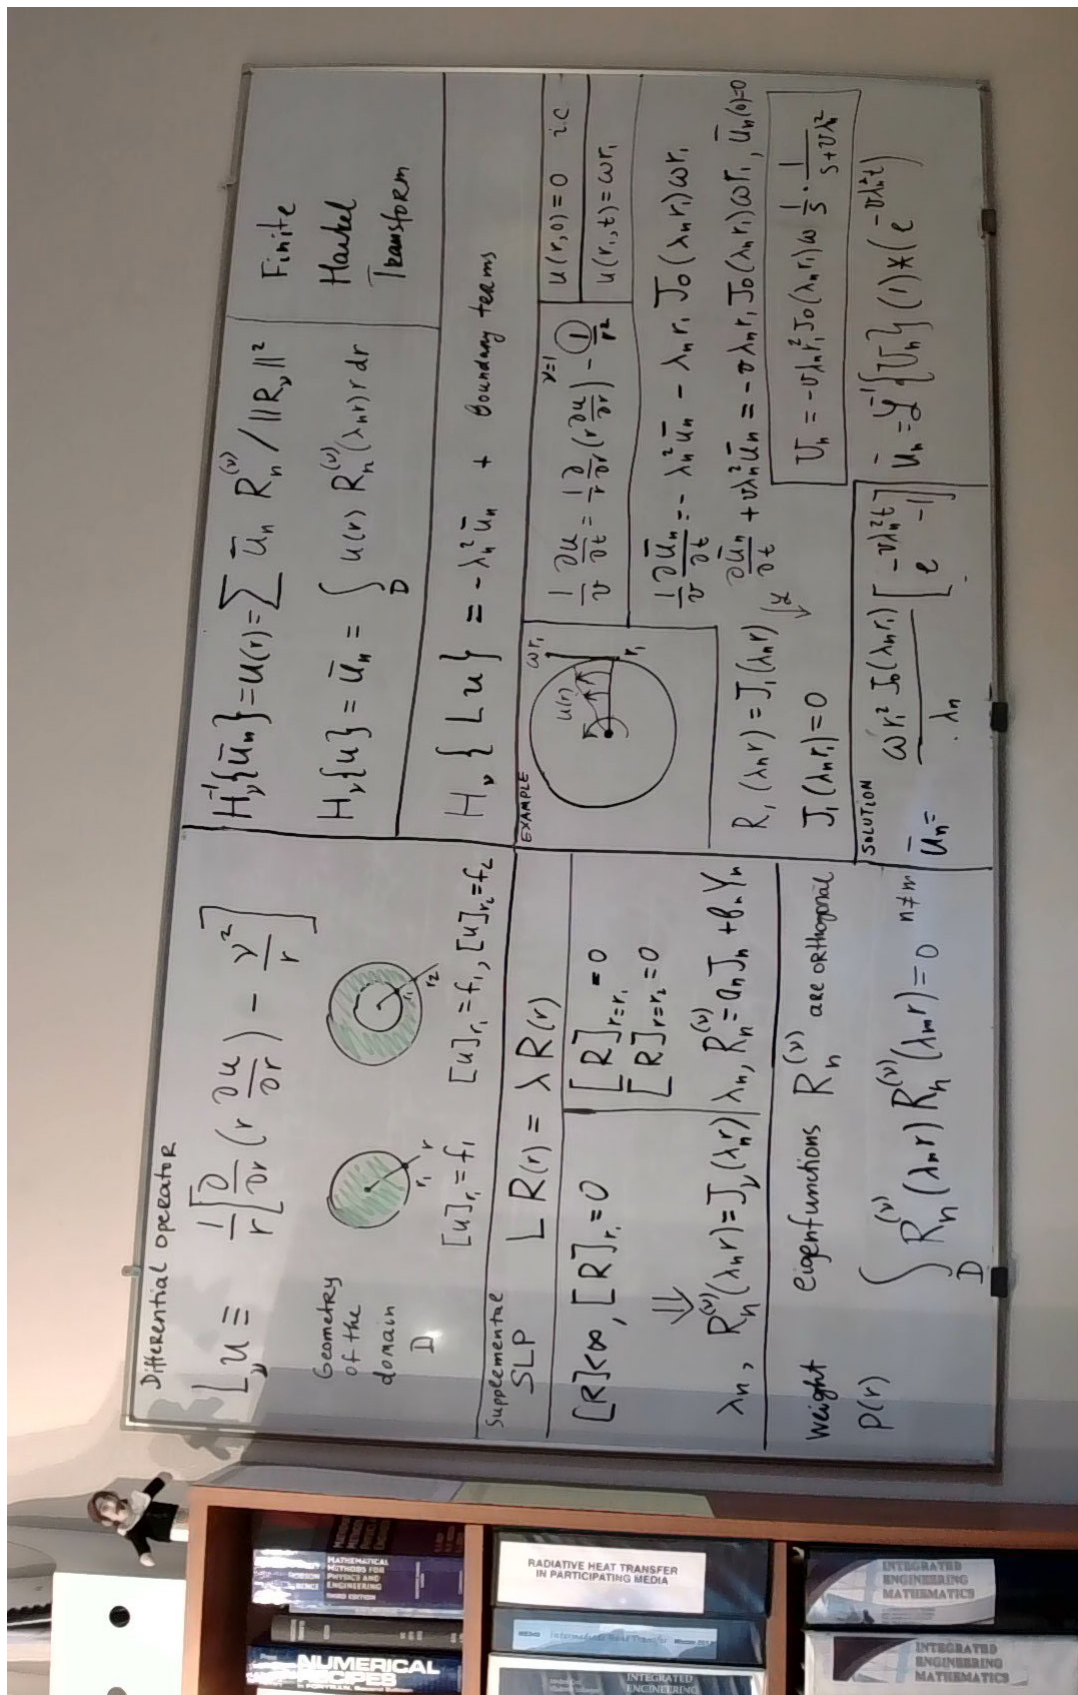 Differential operator
L_ν u ≡ 1/r [ ∂/∂r ( r ∂u/∂r ) - ν²/r ]
Geometry
of the
domain
D
r₁ r
[u]_r₁ = f₁
r₁ r₂
[u]_r₁ = f₁ , [u]_r₂ = f₂
Supplemental
SLP
L R(r) = λ R(r)
[R]<∞ , [R]_r₁ = 0
[R]_r=r₁ = 0
[R]_r=r₂ = 0
⇓
λn , R_n^(ν)(λn r) = J_ν(λn r)
λn , R_n^(ν) = an Jn + bn Yn
weight
p(r)
eigenfunctions R_n^(ν) are orthogonal
∫_D R_n^(ν)(λn r) R_n^(ν)(λm r) = 0 n≠m
H_ν^-1{ūn} = u(r) = ∑ ūn R_n^(ν) / ||R_ν||²
H_ν{u} = ūn = ∫_D u(r) R_n^(ν)(λn r) r dr
Finite
Hankel
Transform
H_ν { Lu } = -λn² ūn + boundary terms
EXAMPLE
ωr₁
u(r)
r₁
ν=1
1/v ∂u/∂t = 1/r ∂/∂r ( r ∂u/∂r ) - 1/r²
u(r,0) = 0 i.c
u(r₁,t) = ωr₁
R₁(λn r) = J₁(λn r)
J₁(λn r₁) = 0
1/v ∂ūn/∂t = -λn² ūn - λn r₁ J₀(λn r₁) ωr₁
∂ūn/∂t + vλn² ūn = -vλn r₁ J₀(λn r₁) ωr₁ , ūn(0)=0
Ūn = -vλn r₁² J₀(λn r₁) ω 1/s · 1/(s+vλn²)
SOLUTION
ūn = ωr₁² J₀(λn r₁) / λn [ e^(-vλn²t) - 1 ]
ūn = ℒ^-1{Ūn} (1)*(e^(-vλn²t))
MATHEMATICAL
METHODS FOR
PHYSICS AND
ENGINEERING
THIRD EDITION
NUMERICAL
RECIPES
RADIATIVE HEAT TRANSFER
IN PARTICIPATING MEDIA
Intermediate Heat Transfer
INTEGRATED
ENGINEERING
INTEGRATED
ENGINEERING
MATHEMATICS
INTEGRATED
ENGINEERING
MATHEMATICS